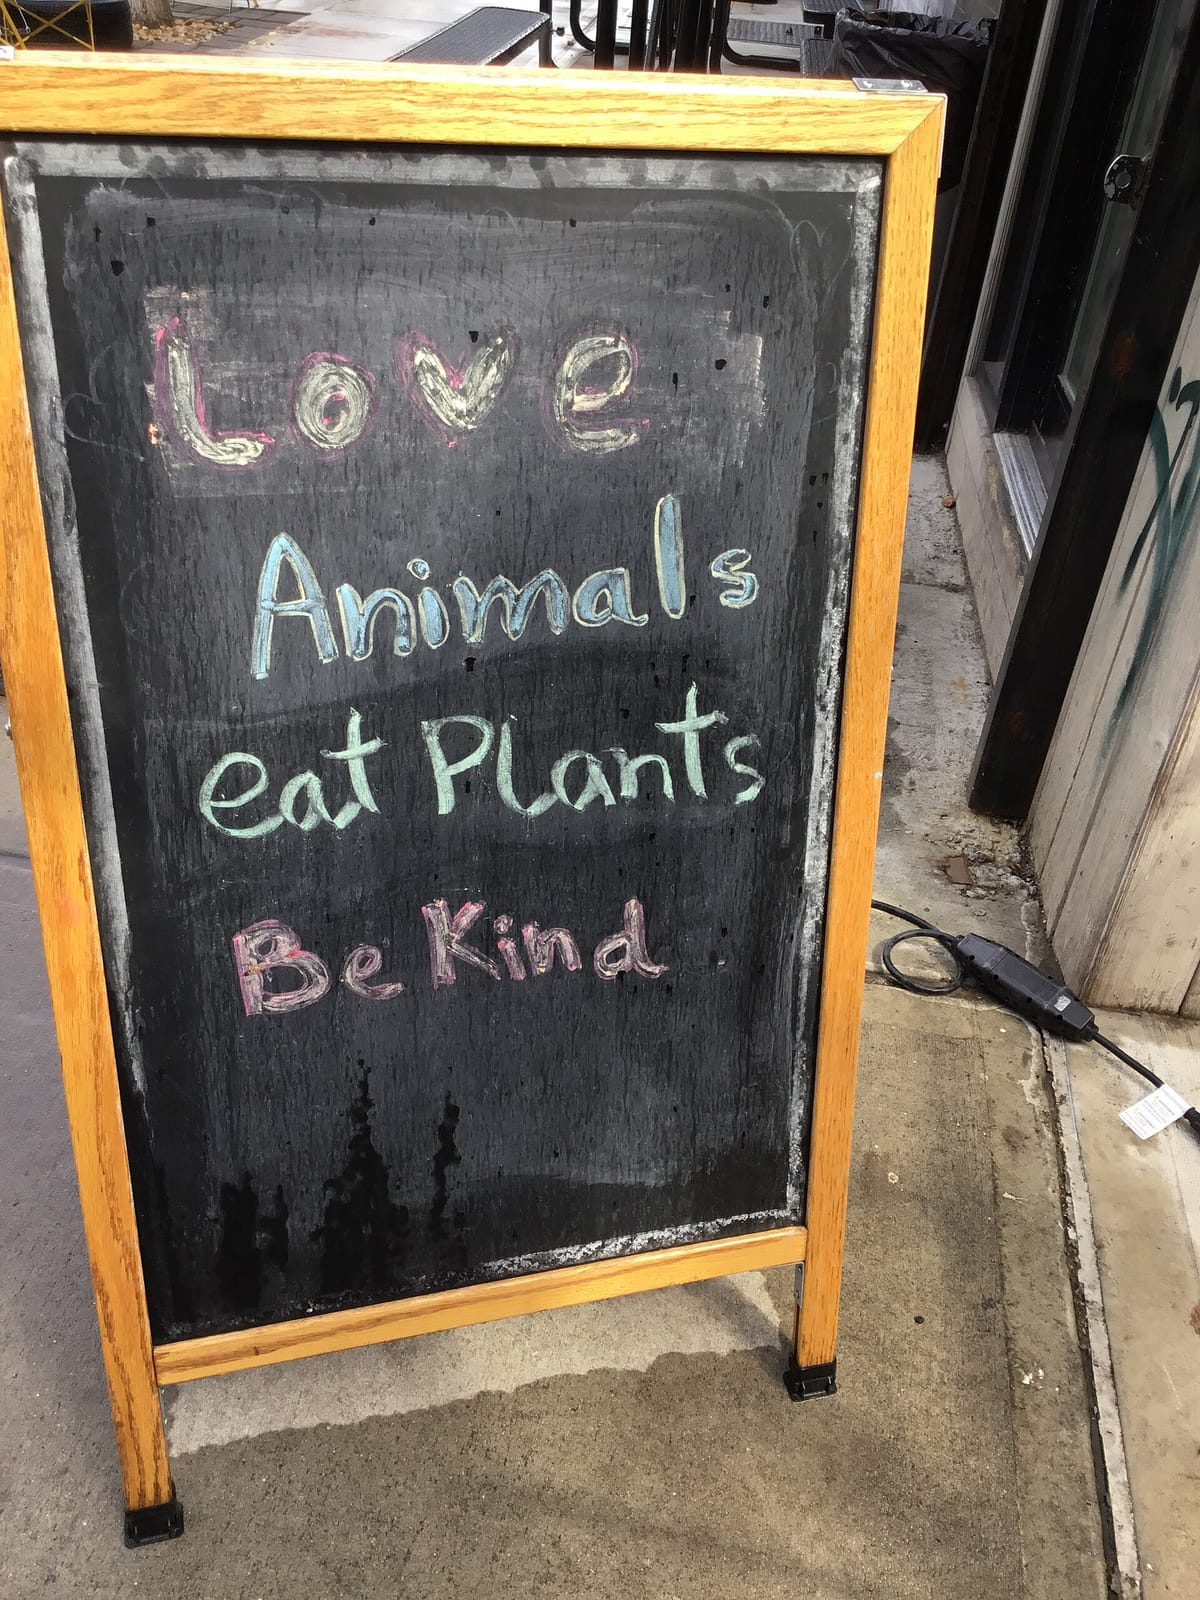 Love
Animals
eat Plants
Be Kind